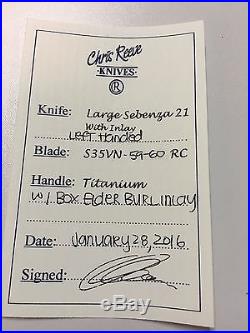 Chris Reeve
·KNIVES·
®
Knife: Large Sebenza 21
With Inlay
Left Handed
Blade: S35VN-59-60 RC
Handle: Titanium
w/ Box Elder Burl inlay
Date: January 28, 2016
Signed: